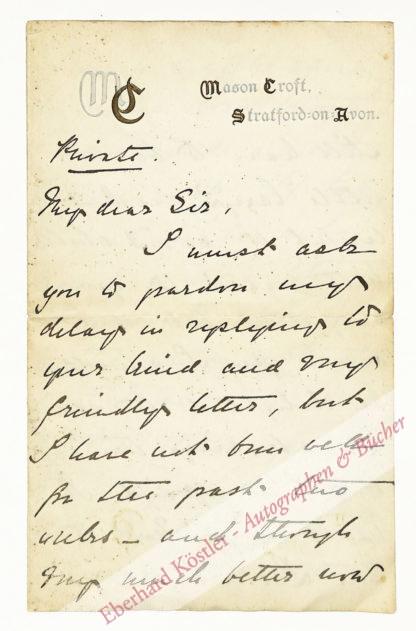 MC
Mason Croft,
Stratford-on-Avon.
Private.
My dear Sir,
I must ask
you to pardon my
delay in replying to
your kind and
friendly letter, but
I have not been well
for the past two
weeks – and though
much better now
Eberhard Köstler - Autographen & Bücher